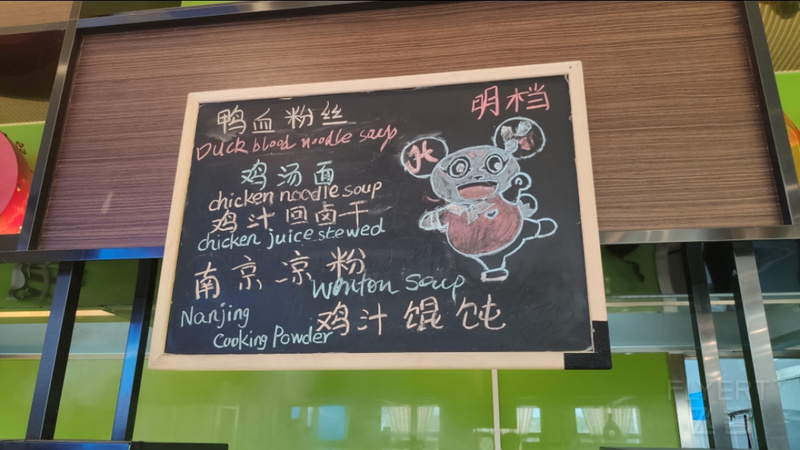 明档
鸭血粉丝
Duck blood noodle soup
鸡汤面
chicken noodle soup
鸡汁回卤干
chicken juice stewed
南京凉粉
Wonton Soup
Nanjing
Cooking Powder
鸡汁馄饨
FLYERT